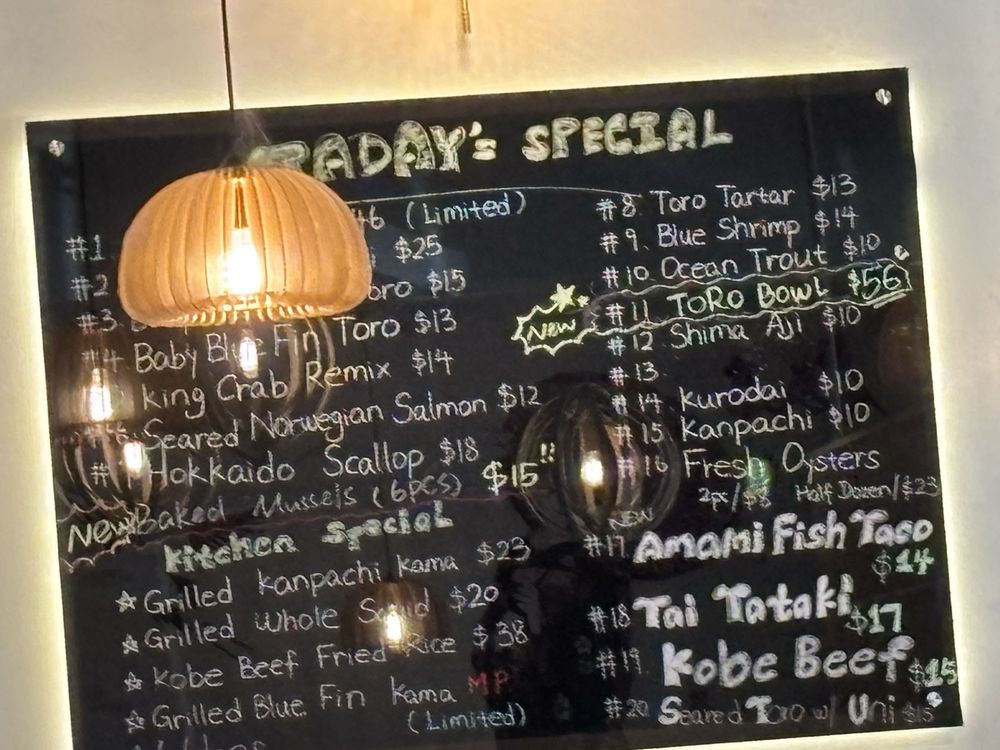 TADAY's SPECIAL
(Limited)
#1. $25
#2 oro $15
#3. Toro $13
#4 Baby Blue Fin
king Crab Remix $14
Seared Norwegian Salmon $12
Hokkaido Scallop $18
New Baked Mussels (6pcs) $15!!
Kitchen Special
☆ Grilled Kanpachi Kama $23
☆ Grilled Whole Squid $20
☆ Kobe Beef Fried Rice $38
☆ Grilled Blue Fin Kama MP
(Limited)
#8 Toro Tartar $13
#9. Blue Shrimp $14
#10 Ocean Trout $10
NEW #11 TORO BOWL $56
#12 Shima Aji $10
#13
#14 Kurodai $10
#15 Kanpachi $10
#16 Fresh Oysters
2pc/$8 Half Dozen/$23
NEW
#17 Amami Fish Taso
$14
#18 Tai Tataki $17
#19 Kobe Beef $15
#20 Seared Toro w/ Uni $15